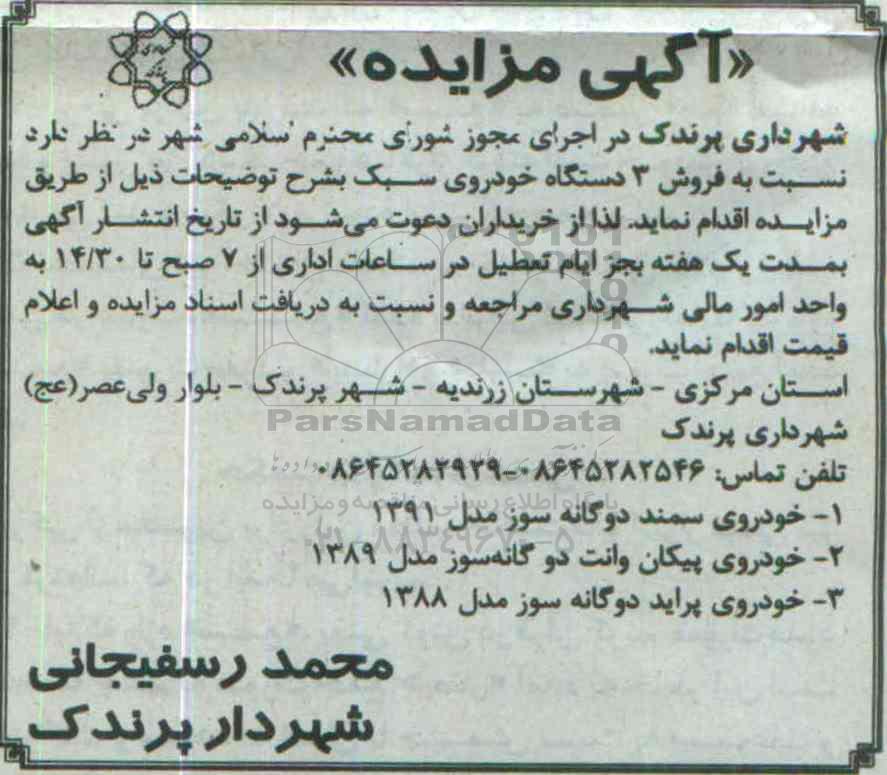 «آگهی مزایده»
شهرداری پرندک در اجرای مجوز شورای محترم اسلامی شهر در نظر دارد
نسبت به فروش ۳ دستگاه خودروی سبک بشرح توضیحات ذیل از طریق
مزایده اقدام نماید. لذا از خریداران دعوت می‌شود از تاریخ انتشار آگهی
بمدت یک هفته بجز ایام تعطیل در ساعات اداری از ۷ صبح تا ۱۴/۳۰ به
واحد امور مالی شهرداری مراجعه و نسبت به دریافت اسناد مزایده و اعلام
قیمت اقدام نماید.
استان مرکزی - شهرستان زرندیه - شهر پرندک - بلوار ولی‌عصر(عج)
ParsNamadData
شهرداری پرندک
تلفن تماس: ۰۸۶۴۵۲۸۲۵۴۶-۰۸۶۴۵۲۸۲۹۲۹
پایگاه اطلاع رسانی مناقصه و مزایده
۱- خودروی سمند دوگانه سوز مدل ۱۳۹۱
۲- خودروی پیکان وانت دو گانه‌سوز مدل ۱۳۸۹
۳- خودروی پراید دوگانه سوز مدل ۱۳۸۸
محمد رسفیجانی
شهردار پرندک